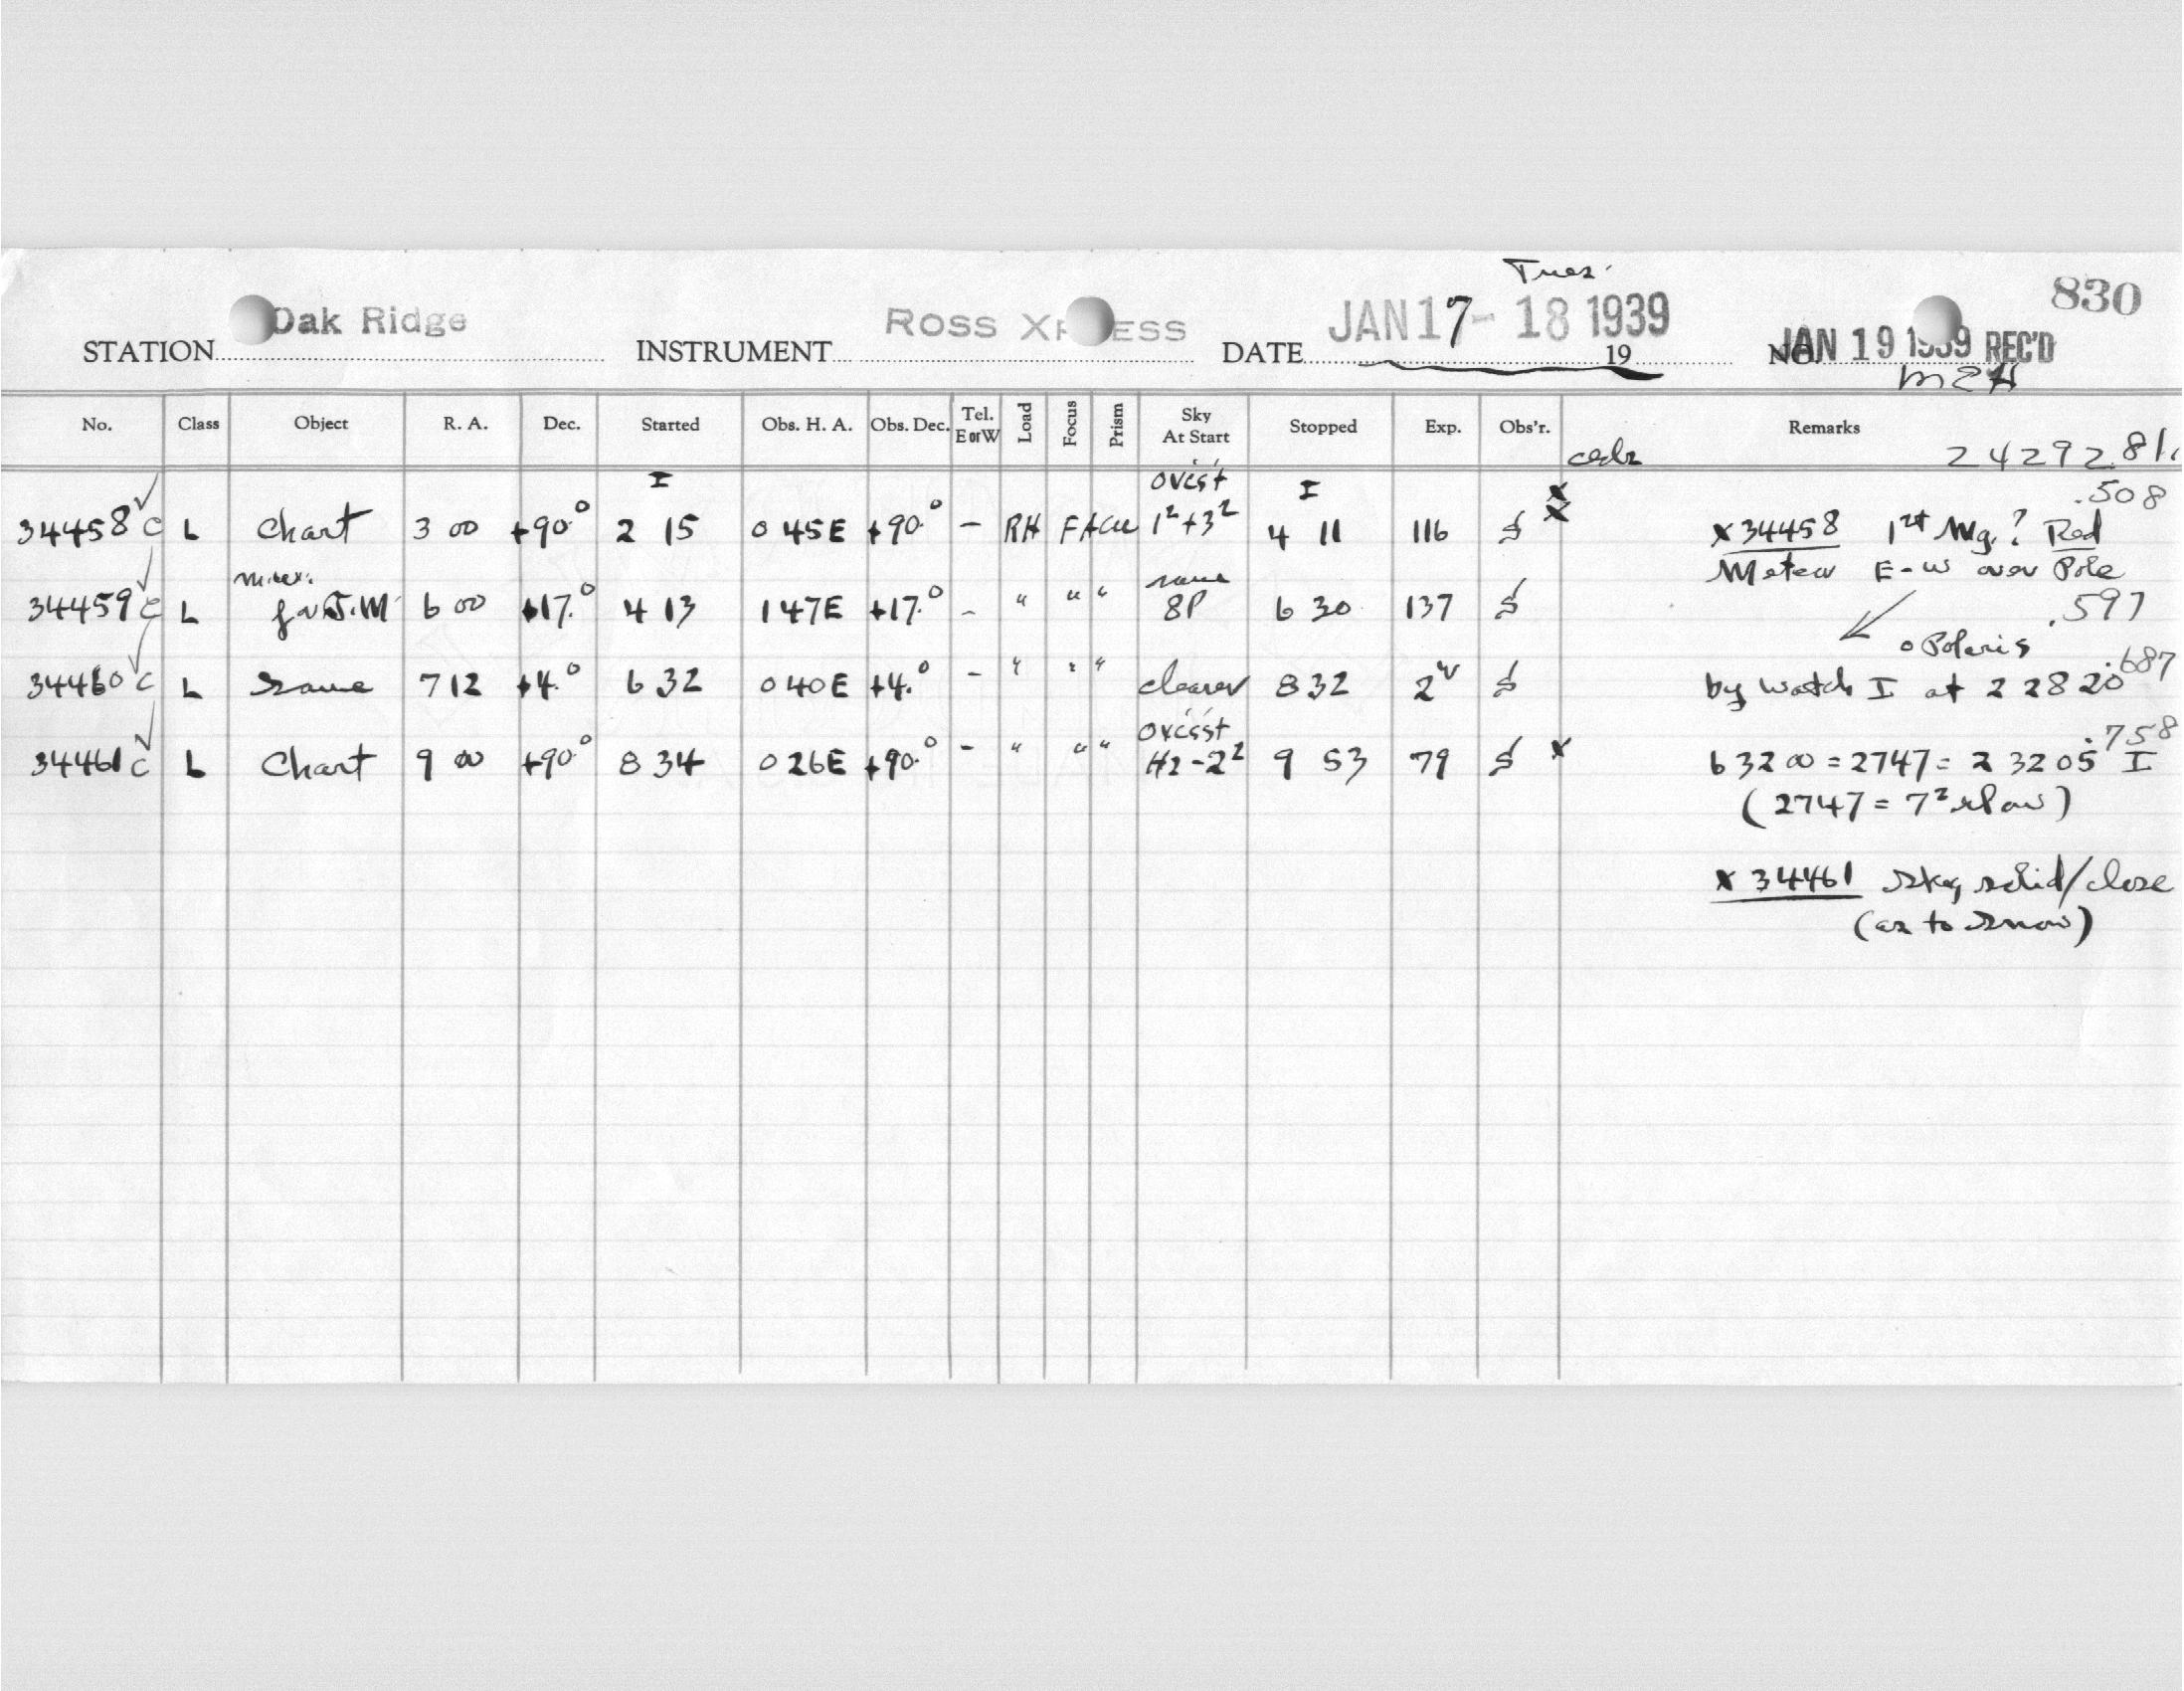 Tues.
830
Oak Ridge ROSS XPRESS JAN 17-18 1939 JAN 19 1939 REC'D
STATION INSTRUMENT DATE 19 NO.
No. Class Object R. A. Dec. Started Obs. H. A. Obs. Dec. Tel. E or W Load Focus Prism Sky At Start Stopped Exp. Obs'r. Remarks
242928
I ovcst I .508
34458 c L Chart 3 00 +90.° 2 15 0 45E +90.° - RH 1²+3² 4 11 116 S x 34458 1st Mg.? Red
Meteor E-W over Pole
same
34459 c L 6 00 +17.° 4 13 1 47E +17.° - " " " 8P 6 30 137 S .597
o Polaris
34460 c L Same 7 12 +4.° 6 32 0 40E +4.° - " " " clearer 8 32 S .687
by watch I at 2 28 20
34461 c L Chart 9 00 +90.° 8 34 0 26E +90.° - " " " Hz-2² 9 53 79 S x .758
6 32 00 = 2747 = 2 32 05 I
(2747 = 7ˢ slow)
x 34461 Sky solid/close
(as to snow)